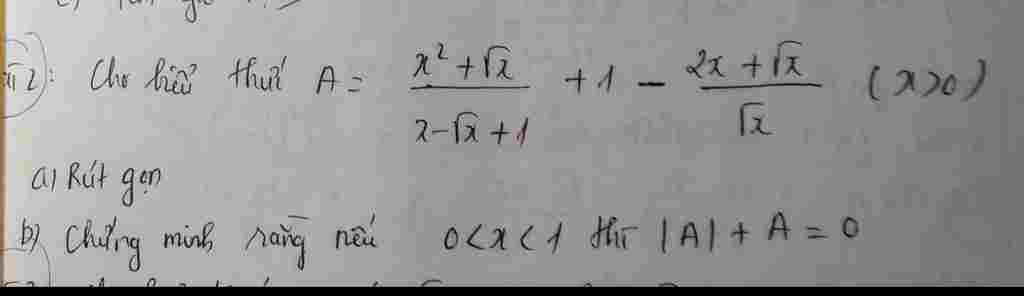 2): Cho biểu thức A = \frac{x^2+\sqrt{x}}{x-\sqrt{x}+1} + 1 - \frac{2x+\sqrt{x}}{\sqrt{x}} (x>0)
a) Rút gọn
b) Chứng minh rằng nếu 0<x<1 thì |A| + A = 0